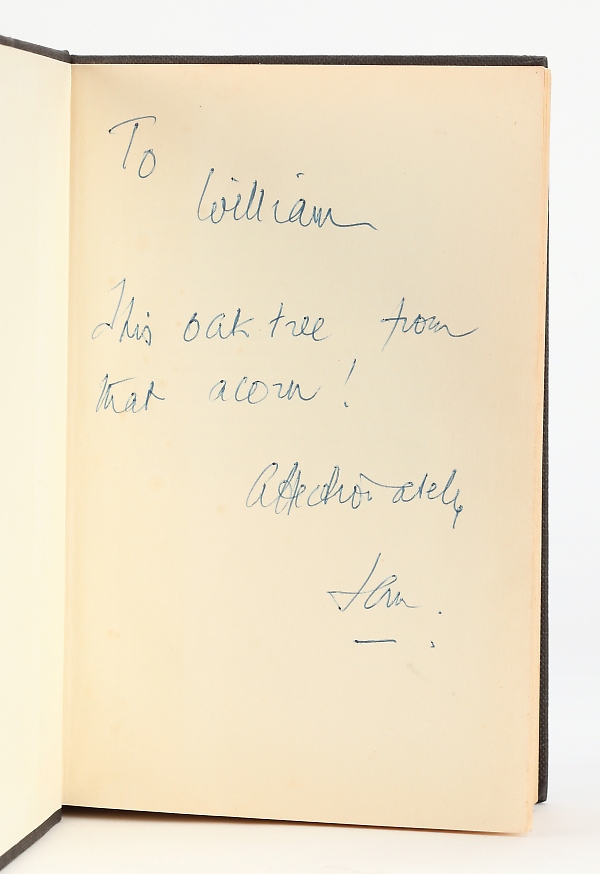 To
William
This oak tree from
that acorn!
Affectionately
Ian.